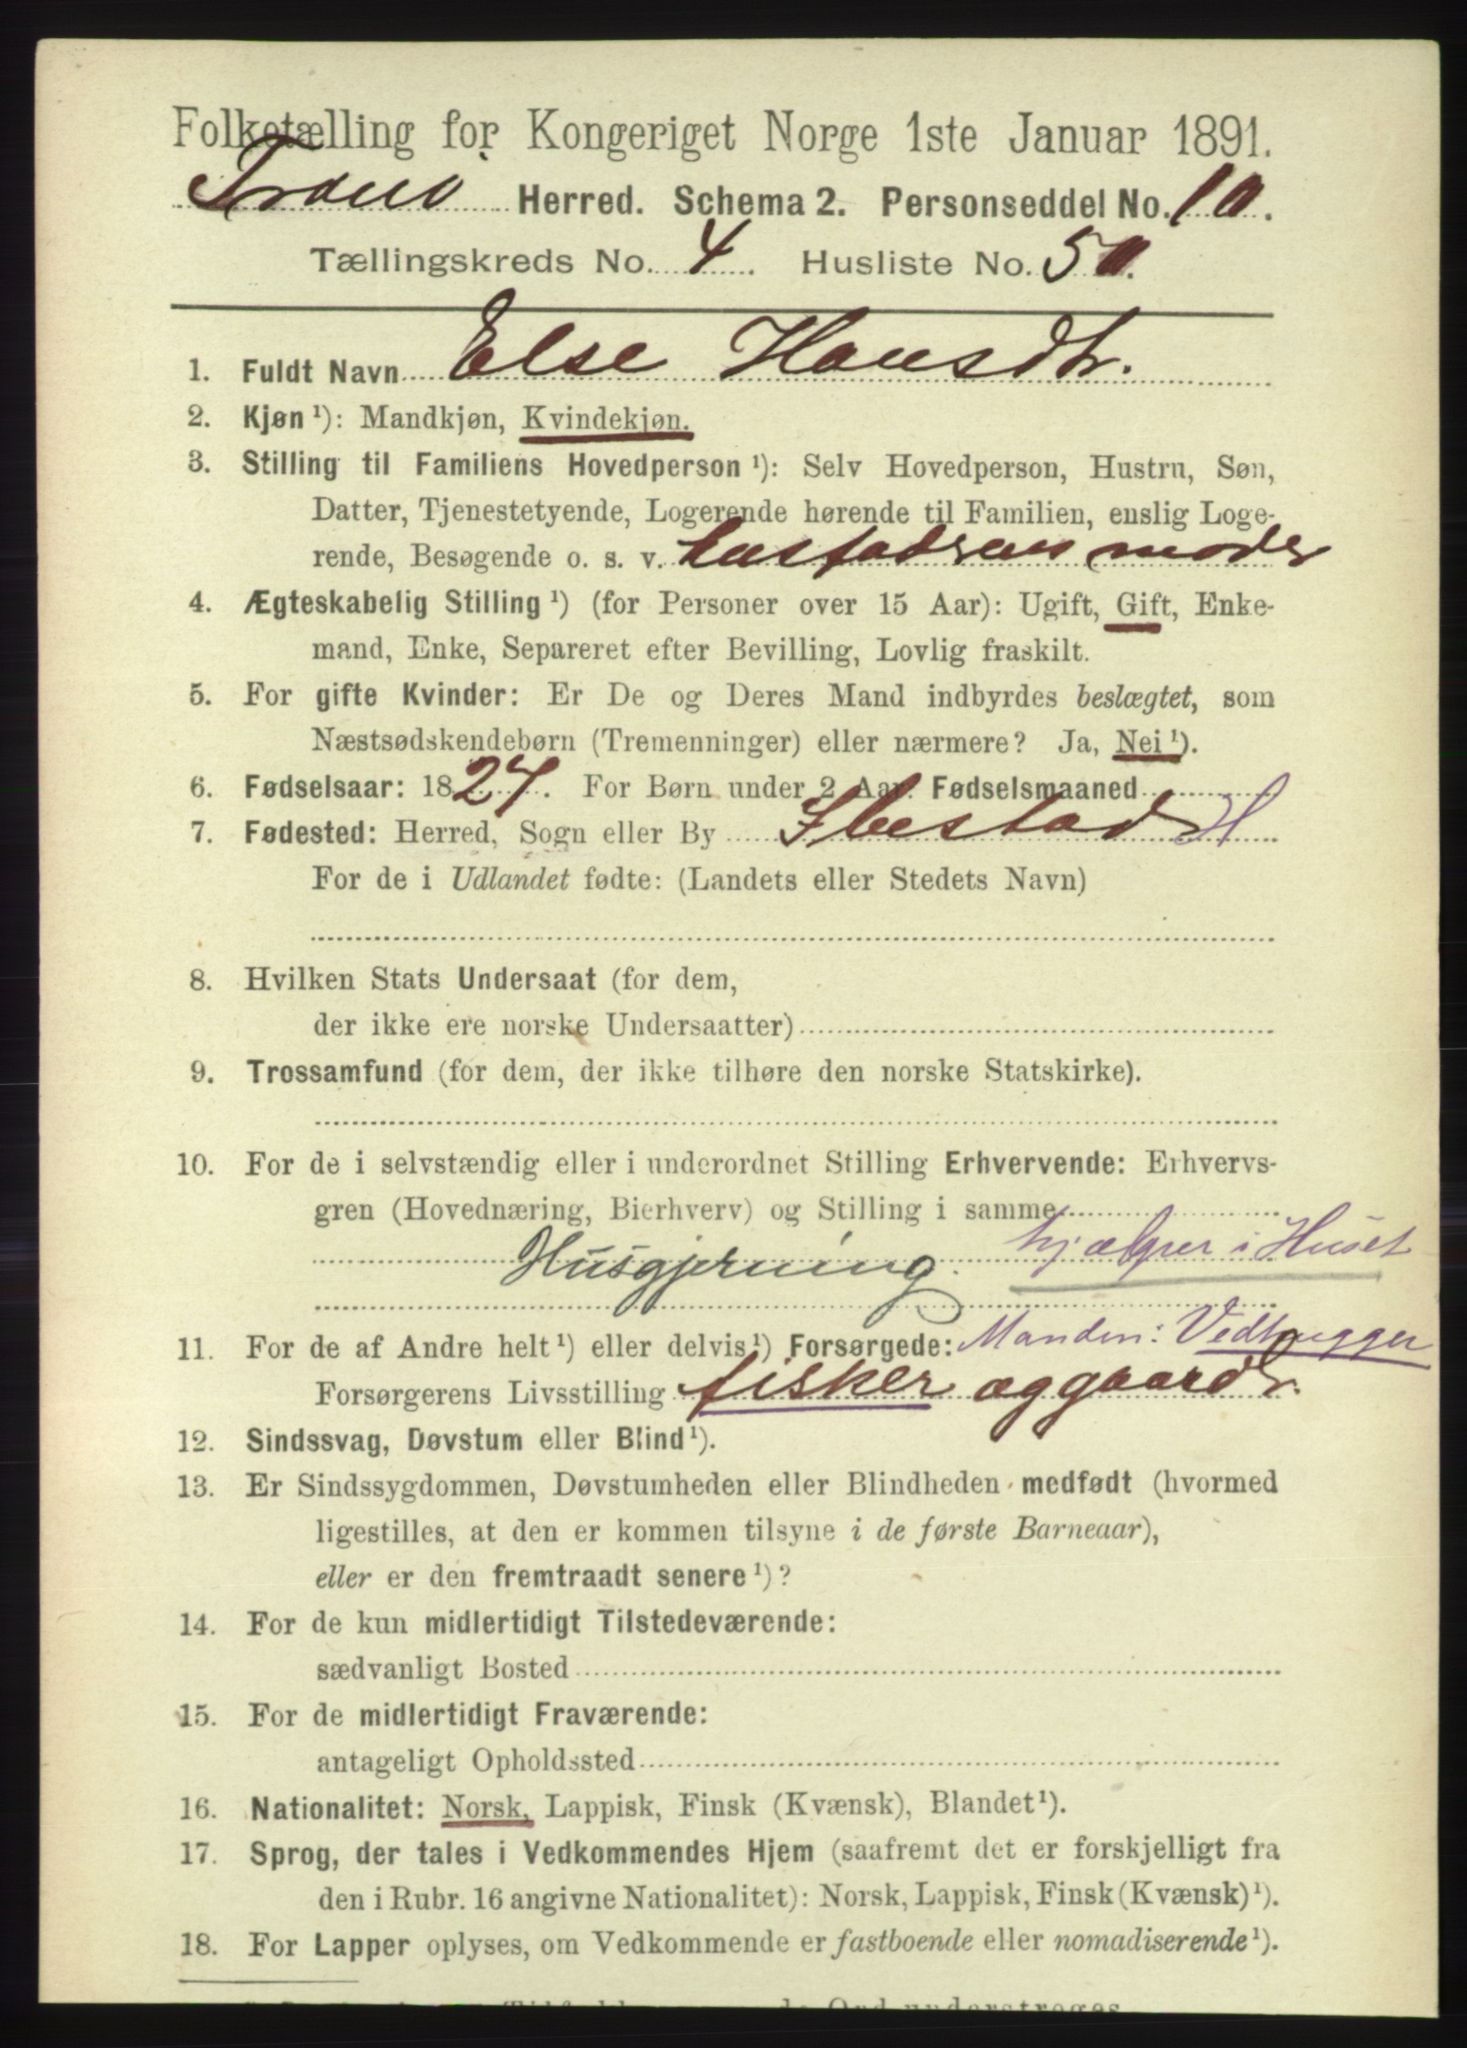 Folketælling for Kongeriget Norge 1ste Januar 1891.
Tranø Herred. Schema 2. Personseddel No. 10.
Tællingskreds No. 4. Husliste No. 50.
1. Fuldt Navn Else Hansdtr.
2. Kjøn ¹): Mandkjøn, Kvindekjøn.
3. Stilling til Familiens Hovedperson ¹): Selv Hovedperson, Hustru, Søn,
Datter, Tjenestetyende, Logerende hørende til Familien, enslig Loge-
rende, Besøgende o. s. v. moder
4. Ægteskabelig Stilling ¹) (for Personer over 15 Aar): Ugift, Gift, Enke-
mand, Enke, Separeret efter Bevilling, Lovlig fraskilt.
5. For gifte Kvinder: Er De og Deres Mand indbyrdes beslægtet, som
Næstsødskendebørn (Tremenninger) eller nærmere? Ja, Nei ¹).
6. Fødselsaar: 1824. For Børn under 2 Aar: Fødselsmaaned
7. Fødested: Herred, Sogn eller By Ibestad H
For de i Udlandet fødte: (Landets eller Stedets Navn)
8. Hvilken Stats Undersaat (for dem,
der ikke ere norske Undersaatter)
9. Trossamfund (for dem, der ikke tilhøre den norske Statskirke).
10. For de i selvstændig eller i underordnet Stilling Erhvervende: Erhvervs-
gren (Hovednæring, Bierhverv) og Stilling i samme
Husgjerning. hjælper i Huset
11. For de af Andre helt ¹) eller delvis ¹) Forsørgede: Manden: Vedhugger
Forsørgerens Livsstilling fisker og gaardbr.
12. Sindssvag, Døvstum eller Blind ¹).
13. Er Sindssygdommen, Døvstumheden eller Blindheden medfødt (hvormed
ligestilles, at den er kommen tilsyne i de første Barneaar),
eller er den fremtraadt senere ¹)?
14. For de kun midlertidigt Tilstedeværende:
sædvanligt Bosted
15. For de midlertidigt Fraværende:
antageligt Opholdssted
16. Nationalitet: Norsk, Lappisk, Finsk (Kvænsk), Blandet ¹).
17. Sprog, der tales i Vedkommendes Hjem (saafremt det er forskjelligt fra
den i Rubr. 16 angivne Nationalitet): Norsk, Lappisk, Finsk (Kvænsk) ¹).
18. For Lapper oplyses, om Vedkommende er fastboende eller nomadiserende ¹).